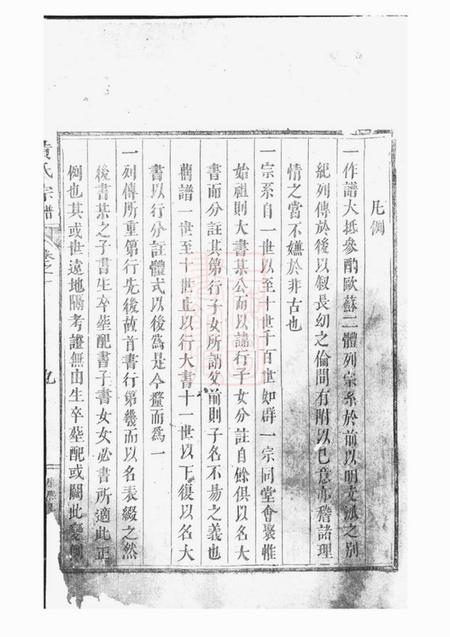 凡例
一作譜大抵參酌歐蘇二體列宗系於前以明支派之別
紀列傳於後以叙長幼之倫間有附以己意亦稽諸理
情之當不嫌於非古也
一宗系自一世以至十世千百世如群一宗同堂會聚惟
始祖則大書某公而以諱行子女分註自餘俱以名大
書而分註其第行子女所謂父前則子名不易之義也
舊譜一世至十世止以行大書十一世以下復以名大
書以行分註體式以後為是今釐而為一
一列傳所重第行先後故首書行第幾而以名表綴之然
後書某之子書生卒葬配書子書女女必書所適此正
例也其或世遠地隔考證無由生卒葬配或闕此變例
黃氏宗譜
卷之一
九